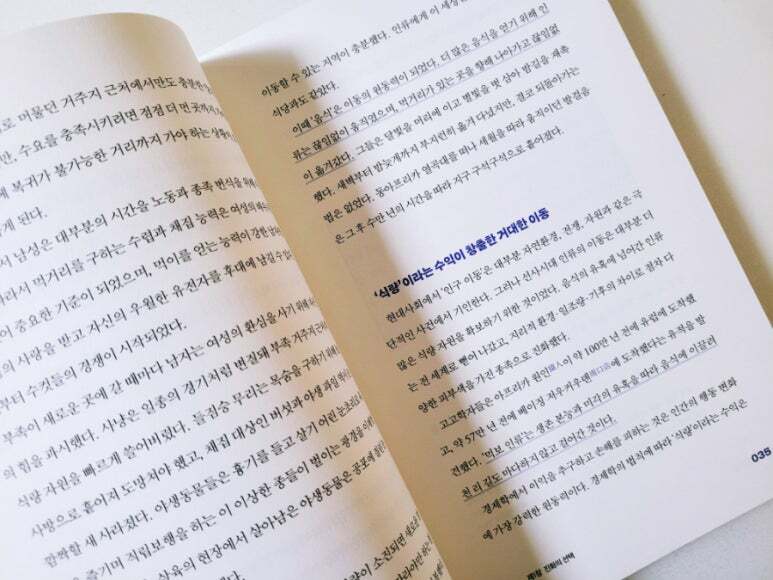 로 머물던 거주지 근처에서만도 충분한
만, 수요를 충족시키려면 점점 더 먼 곳까지
해 복귀가 불가능한 거리까지 가야 하는 상황
게 된다.
서 남성은 대부분의 시간을 노동과 종족 번식을 위해
따라서 먹거리를 구하는 수렵과 채집 능력은 여성의
이 중요한 기준이 되었으며, 먹이를 얻는 능력이 강한
의 사랑을 받고 자신의 우월한 유전자를 후대에 남길 수
부터 수컷들의 경쟁이 시작되었다.
부족이 새로운 곳에 갈 때마다 남자는 여성의 환심을 사기 위해
의 힘을 과시했다. 사냥은 일종의 경기처럼 변질돼 부족 거주지
식량 자원을 빠르게 쓸어버렸다. 들짐승 무리는 목숨을 구하기 위해
사방으로 흩어져 도망쳐야 했고, 채집 대상인 버섯과 야생 과일 역시
깜짝할 새 사라졌다. 야생동물들은 흉기를 들고 살기 어린 눈초리로
을 즐기며 직립보행을 하는 이 이상한 종들이 벌이는 광경을
살육의 현장에서 살아남은 야생동물은 공포에
이 소진되면 새로운
이동할 수 있는 지역이 충분했다. 인류에게 이 세상은
식당과도 같았다.
이때 '음식'은 이동의 원동력이 되었다. 더 많은 음식을 얻기 위해 인
류는 끊임없이 움직였으며, 먹거리가 있는 곳을 향해 나아가고 끊임없
이 옮겨갔다. 그들은 달빛을 머리에 이고 별빛을 벗 삼아 밤길을 재촉
했다. 새벽부터 밤늦게까지 부지런히 옮겨 다녔지만, 결코 되돌아가는
법은 없었다. 동아프리카 열곡대를 떠나 세월을 따라 움직이던 발걸음
은 그 후 수만 년의 시간을 따라 지구 구석구석으로 흩어졌다.
'식량'이라는 수익이 창출한 거대한 이동
현대사회에서 '인구 이동'은 대부분 자연환경, 전쟁, 자원과 같은 극
단적인 사건에서 기인한다. 그러나 선사시대 인류의 이동은 대부분 더
많은 식량 자원을 확보하기 위한 것이었다. 음식의 유혹에 넘어간 인류
는 전 세계로 뻗어 나갔고, 지리적 환경·일조량·기후의 차이로 점차 다
양한 피부색을 가진 종족으로 진화했다.
고고학자들은 아프리카 원인猿人이 약 100만 년 전에 유럽에 도착했
고, 약 57만 년 전에 베이징 저우커우뎬周口店에 도착했다는 유적을 발
견했다. '먹보 인류'는 생존 본능과 미각의 유혹을 따라 음식에 이끌려
천 리 길도 마다하지 않고 걸어간 것이다.
경제학에서 이익을 추구하고 손해를 피하는 것은 인간의 행동 변화
에 가장 강력한 원동력이다. 경제학의 법칙에 따라 '식량'이라는 수익은
제1장 진화의 선택
035